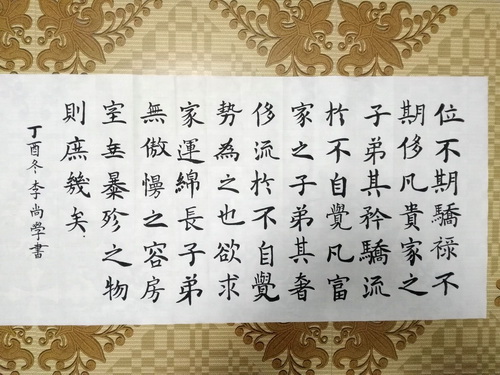 位不期驕祿不
期侈凡貴家之
子弟其矜驕流
於不自覺凡富
家之子弟其奢
侈流於不自覺
勢為之也欲求
家運綿長子弟
無傲慢之容房
室無暴殄之物
則庶幾矣
丁酉冬李尚學書